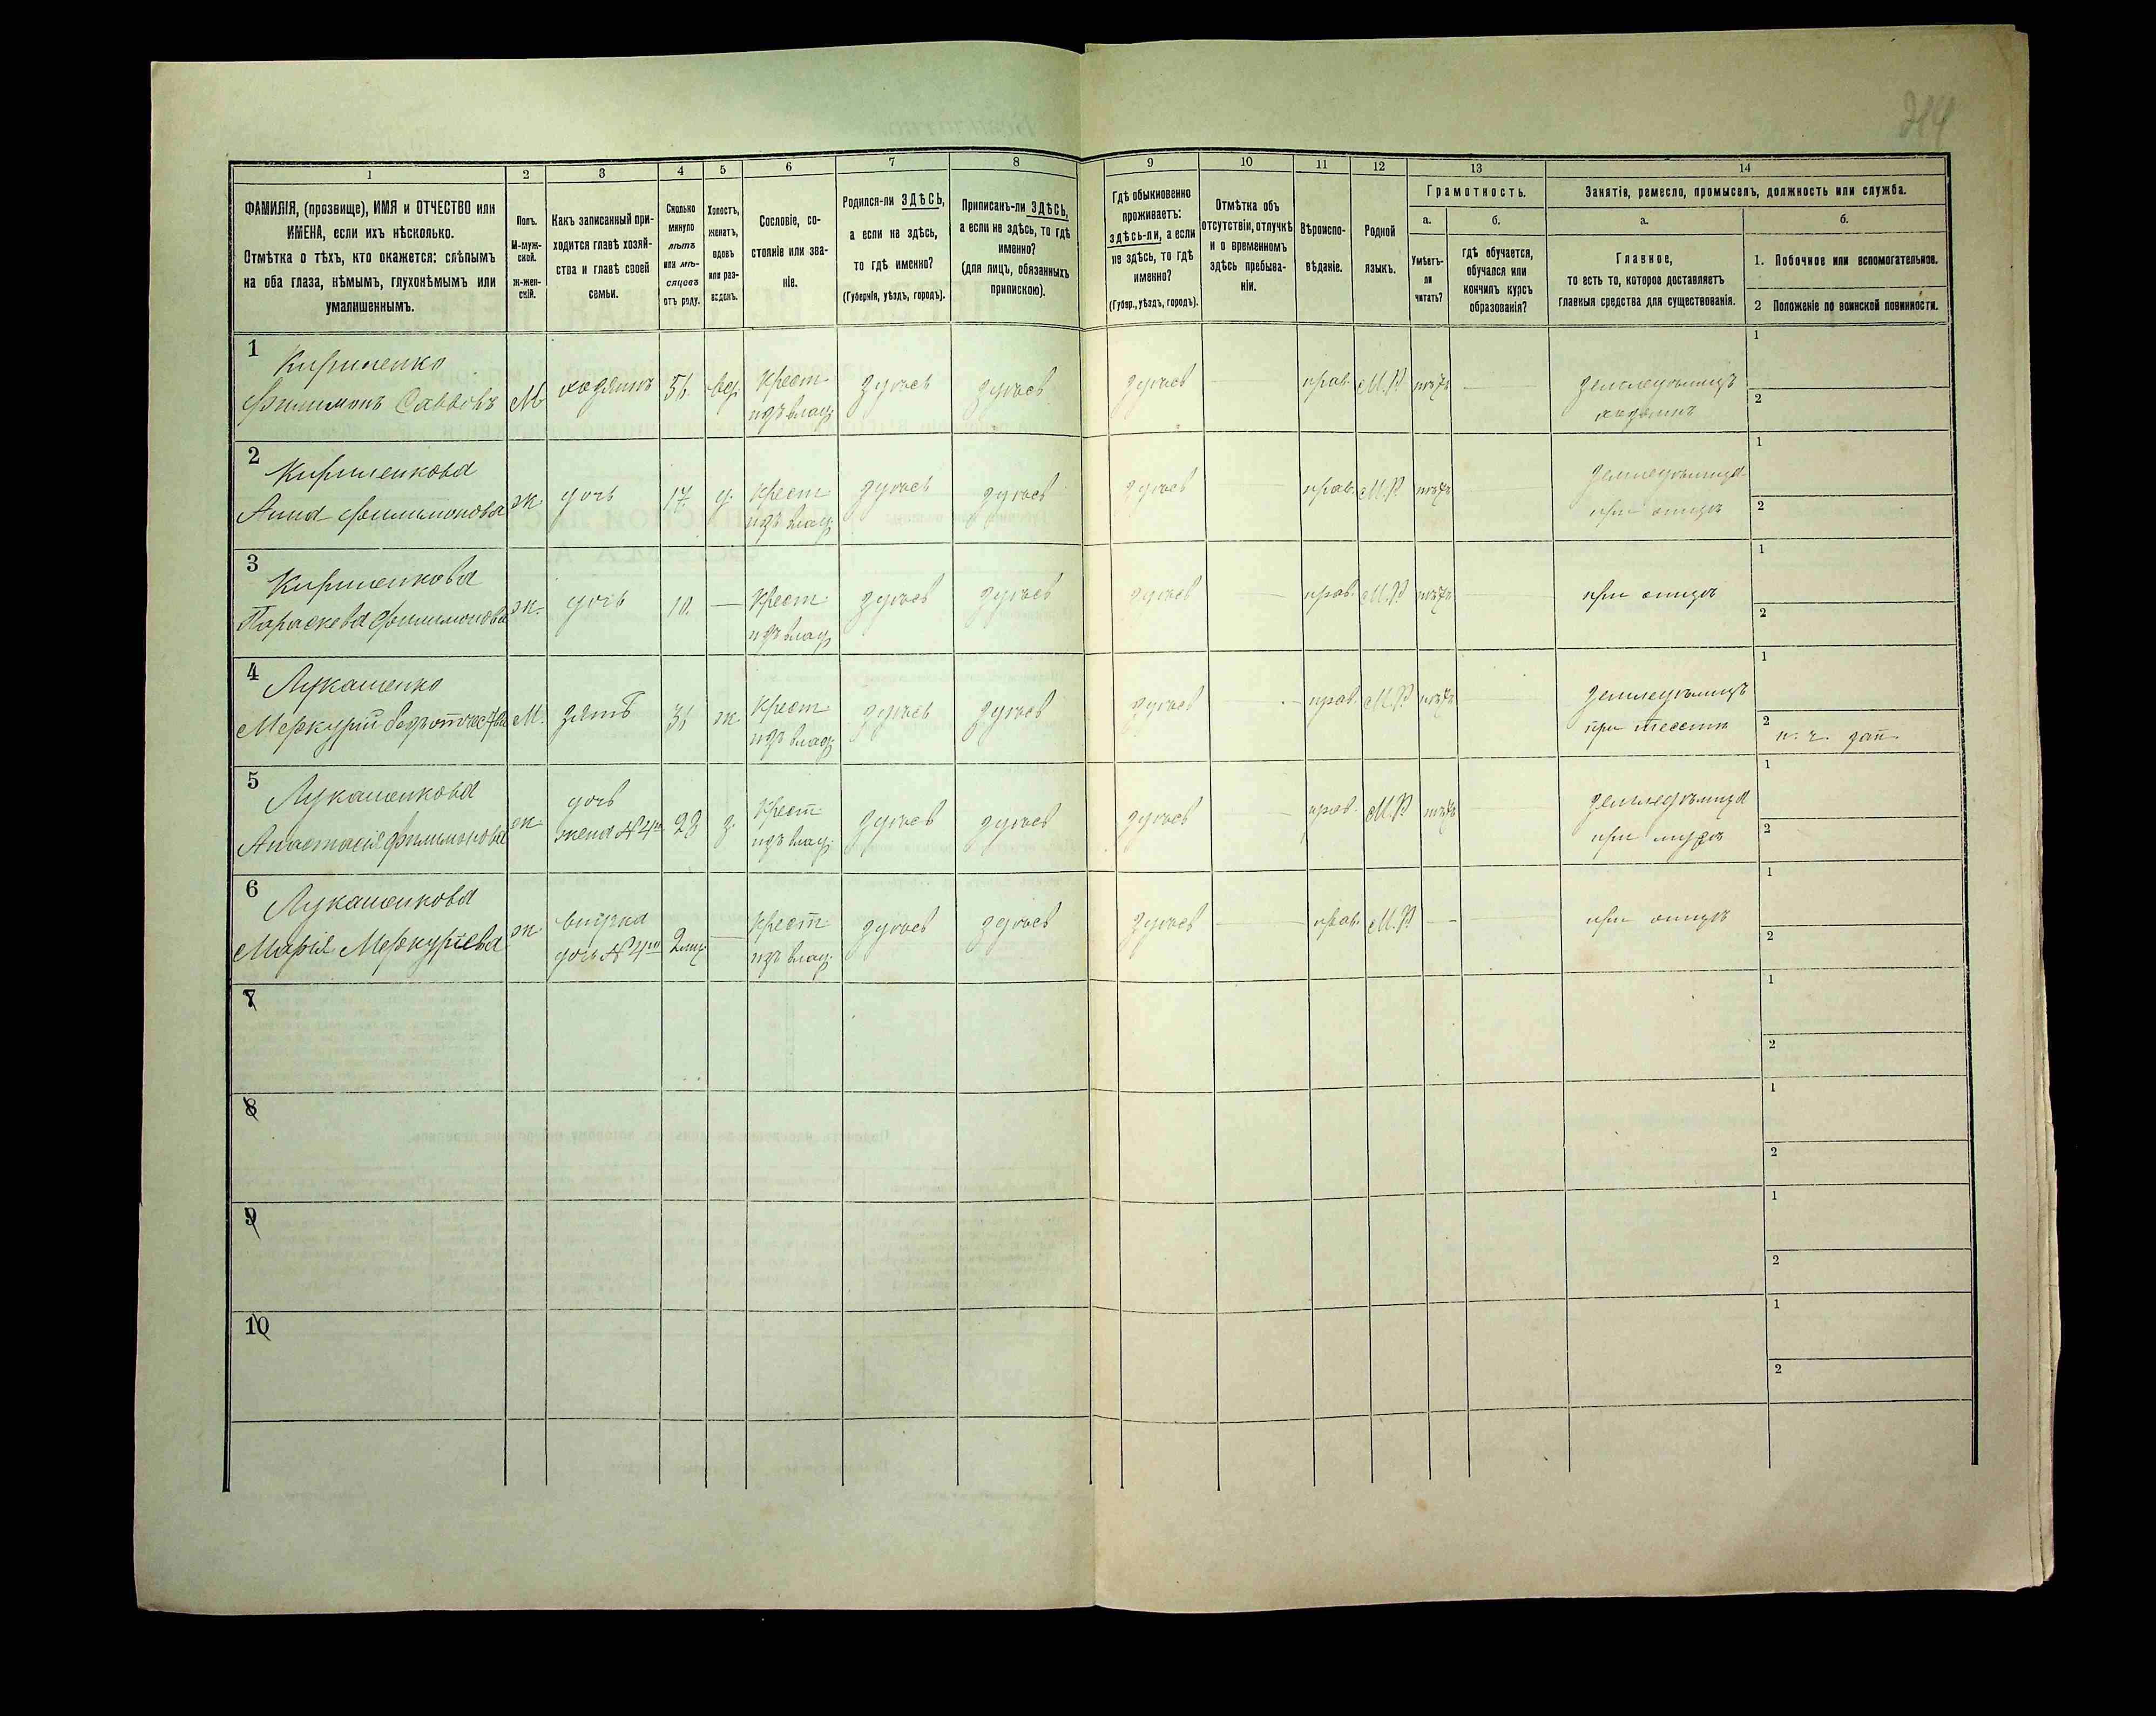 214
1 2 3 4 5 6 7 8 9 10 11 12 13 14
ФАМИЛІЯ, (прозвище), ИМЯ и ОТЧЕСТВО или
ИМЕНА, если ихъ нѣсколько.
Отмѣтка о тѣхъ, кто окажется: слѣпымъ
на оба глаза, нѣмымъ, глухонѣмымъ или
умалишеннымъ.
Полъ.
М-муж-
ской.
Ж-жен-
скій.
Какъ записанный при-
ходится главѣ хозяй-
ства и главѣ своей
семьи.
Сколько
минуло
лѣтъ
или мѣ-
сяцевъ
отъ роду.
Холостъ,
женатъ,
вдовъ
или раз-
веденъ.
Сословіе, со-
стояніе или зва-
ніе.
Родился-ли ЗДѢСЬ,
а если не здѣсь,
то гдѣ именно?
(Губернія, уѣздъ, городъ).
Приписанъ-ли ЗДѢСЬ,
а если не здѣсь, то гдѣ
именно?
(для лицъ, обязанныхъ
припискою).
Гдѣ обыкновенно
проживаетъ:
здѣсь-ли, а если
не здѣсь, то гдѣ
именно?
(Губер., уѣздъ, городъ).
Отмѣтка объ
отсутствіи, отлучкѣ
и о временномъ
здѣсь пребыва-
ніи.
Вѣроиспо-
вѣданіе.
Родной
языкъ.
Грамотность.
а. б.
Умѣетъ-
ли
читать?
гдѣ обучается,
обучался или
кончилъ курсъ
образованія?
Занятія, ремесло, промыселъ, должность или служба.
а. б.
Главное,
то есть то, которое доставляетъ
главныя средства для существованія.
1. Побочное или вспомогательное.
2 Положеніе по воинской повинности.
1
Кириленко
Филимонъ Саввовъ М хозяинъ 56. вд. Крест. здѣсь здѣсь здѣсь — прав. М.Р. нѣтъ — земледѣлецъ
изъ влад. хозяинъ
1
2
2
Кириленкова
Анна Филимонова ж. дочь 17 д. Крест. здѣсь здѣсь здѣсь прав. М.Р. нѣтъ земледѣлица
изъ влад. при отцѣ
1
2
3
Кириленкова
Параскева Филимонова ж. дочь 10. — Крест. здѣсь здѣсь здѣсь — прав. М.Р. нѣтъ при отцѣ
изъ влад.
1
2
4
Лукашенко
Меркурій безъотчества М. зять 31 ж. Крест. здѣсь здѣсь здѣсь — прав. М.Р. нѣтъ — земледѣлецъ
изъ влад. при тестѣ
1
2
5
Лукашенкова
Анастасія Филимонова ж. дочь
жена №4го 28 з. Крест. здѣсь здѣсь здѣсь — прав. М.Р. нѣтъ земледѣлица
изъ влад. при мужѣ
1
2
6
Лукашенкова
Марія Меркуріева ж. внучка
дочь №4го 2 мц. — Крест. здѣсь здѣсь здѣсь — прав. М.Р. — при отцѣ
изъ влад.
1
2
7
1
2
8
1
2
9
1
2
10
1
2